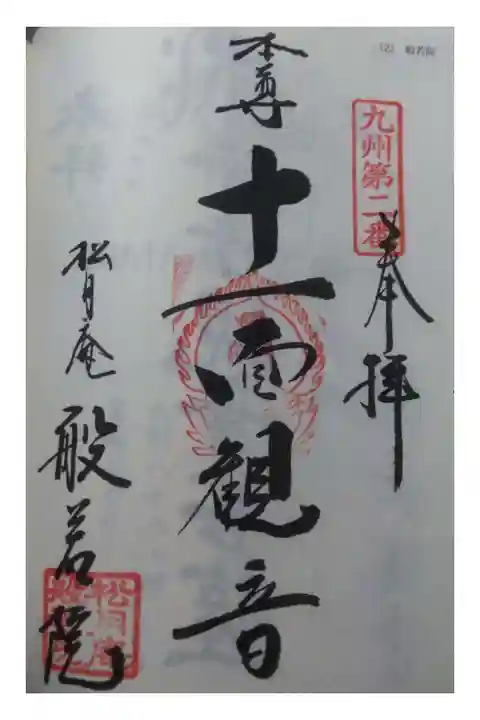 (2) 般若院
九州第二番
奉拝
本尊
十一面観音
松月庵
般若院
松月庵